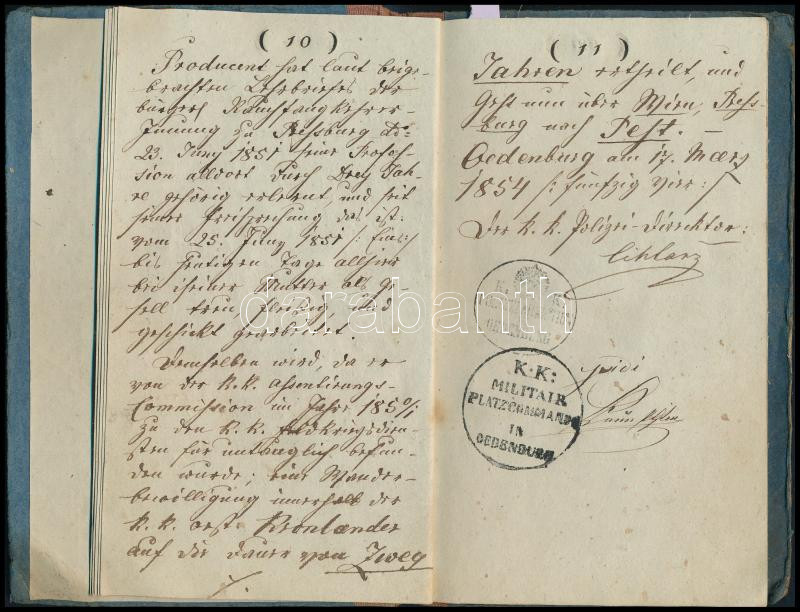 ( 10 )
Producent hat laut beige-
brachten Lehrbriefes der
bürgerl Rauchfangkehrer-
Innung zu Pressburg ddo
23. Juny 1851 seine Profes-
sion alldort durch Drey Jah-
re gehörig erlernt, und seit
seiner Freisprechung das ist:
vom 25. Juny 1851 /: Eins :/
bis heutigen Tage allhier
bei seiner Mutter als Ge-
sell treu, fleißig und
geschickt gearbeitet.
Demselben wird, da er
von der k.k. Assentirungs-
Commission im Jahre 1850/1
zu den k.k. Feldkriegsdien-
sten für untauglich befun-
den wurde; eine Wander-
bewilligung innerhalb der
k.k. oest. Kronländer
auf die Dauer von Zwey
./.
( 11 )
Jahren ertheilt, und
geht nun über Wien, Press-
burg nach Pest. –
Oedenburg am 17. Maerz
1854 /: fünfzig vier :/
Der k.k. Polizei-Direktor:
K. K.
OEDENBURG
vidi
K.K:
MILITAIR
PLATZCOMMANDO
IN
OEDENBURG
darabanth